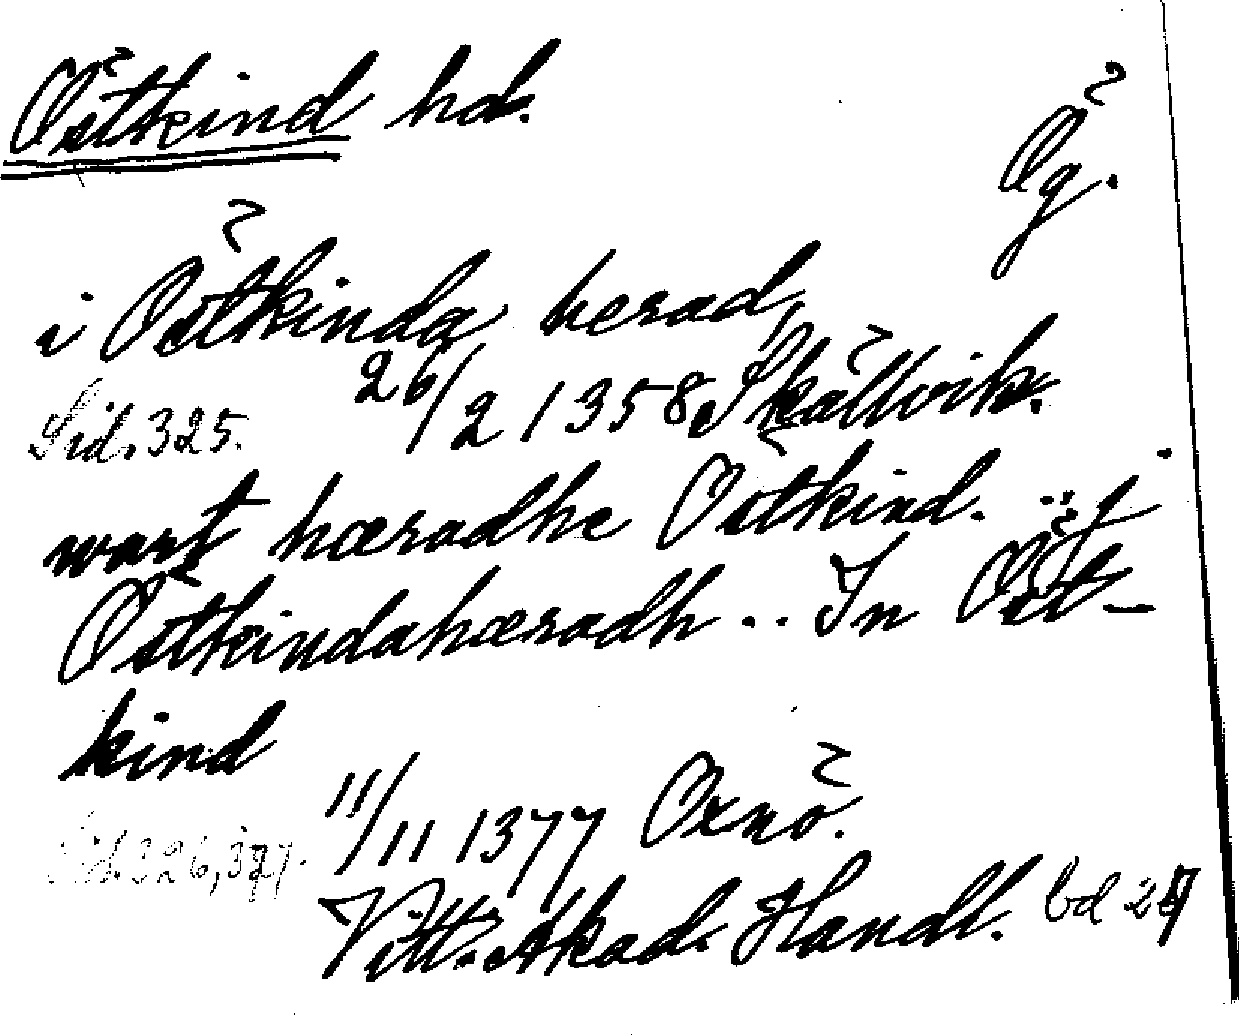 Östkind hd.
Ög.
i Östkinda herad,
26/2 1358 Skällvik.
Sid. 325.
wart hæradhe Östkind. .. j
Östkindahæradh .. In Öst-
kind
11/11 1377 Oxnö.
Sid. 326, 327.
Vitt. Akad. Handl. bd